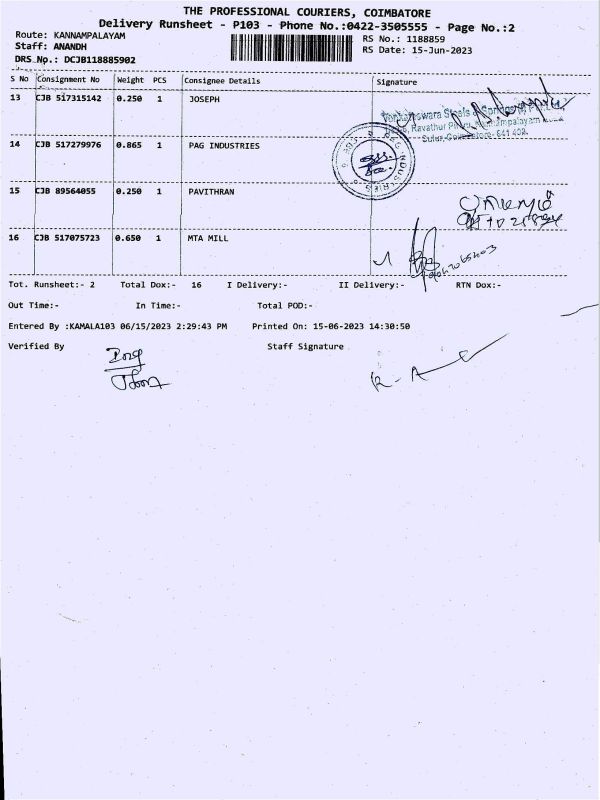 THE PROFESSIONAL COURIERS, COIMBATORE
Delivery Runsheet - P103 - Phone No.:0422-3505555 - Page No.:2
Route: KANNAMPALAYAM
RS No.: 1188859
Staff: ANANDH
RS Date: 15-Jun-2023
DRS No.: DCJB118885902
S No Consignment No Weight PCS Consignee Details Signature
13 CJB 517315142 0.250 1 JOSEPH
14 CJB 517279976 0.865 1 PAG INDUSTRIES
15 CJB 89564055 0.250 1 PAVITHRAN
16 CJB 517075723 0.650 1 MTA MILL
Tot. Runsheet:- 2 Total Dox:- 16 I Delivery:- II Delivery:- RTN Dox:-
Out Time:- In Time:- Total POD:-
Entered By :KAMALA103 06/15/2023 2:29:43 PM Printed On: 15-06-2023 14:30:50
Verified By Staff Signature